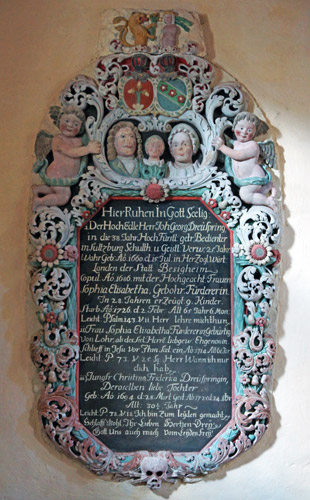 Hier Ruhen In Gott Seelig
Der Hoch Edle Herr Joh. Georg Dreüspring
in die 38. Jahr Hoch Fürstl. ger Bedienter
in Sultzburg Schulth u Geistl Verw 2 Jahr
Wahr Geb Aō 1660 d 5t Jul. in Herzog Wirt
Landen der Statt Besigheim
Copul Aō 1686 mit der Hochgeacht Frauen
Sophia Elisabetha, Gebohr Fürdererin.
In 28 Jahren erZeügt 9. Kinder.
Starb Aō 1726 d 2. Febr Alt 65 Jahr 6 Mon
Leicht Psalm 143 V 11 Herr lehre mich thun
u Frau Sophia Elisabetha Fürdererin Gebürtig
Von Lohr, als des Sel. Herrn liebgew Ehgenom
Schlieff in Jesu
Leicht P. 73. V 25 Herr Wann ich nur
dich hab
u Jungfr Christina Friderica Dreüspringin,
Deroselben liebe Tochter
Geb Aō 1694 d 28 Mart
Alt 30½ Jahr
Leicht P. 73. V Ich bin Zum leÿden gemacht
Schlafft Wohl Ihr Lieben Hertzen Dreÿ
Gott Uns auch mach Vom